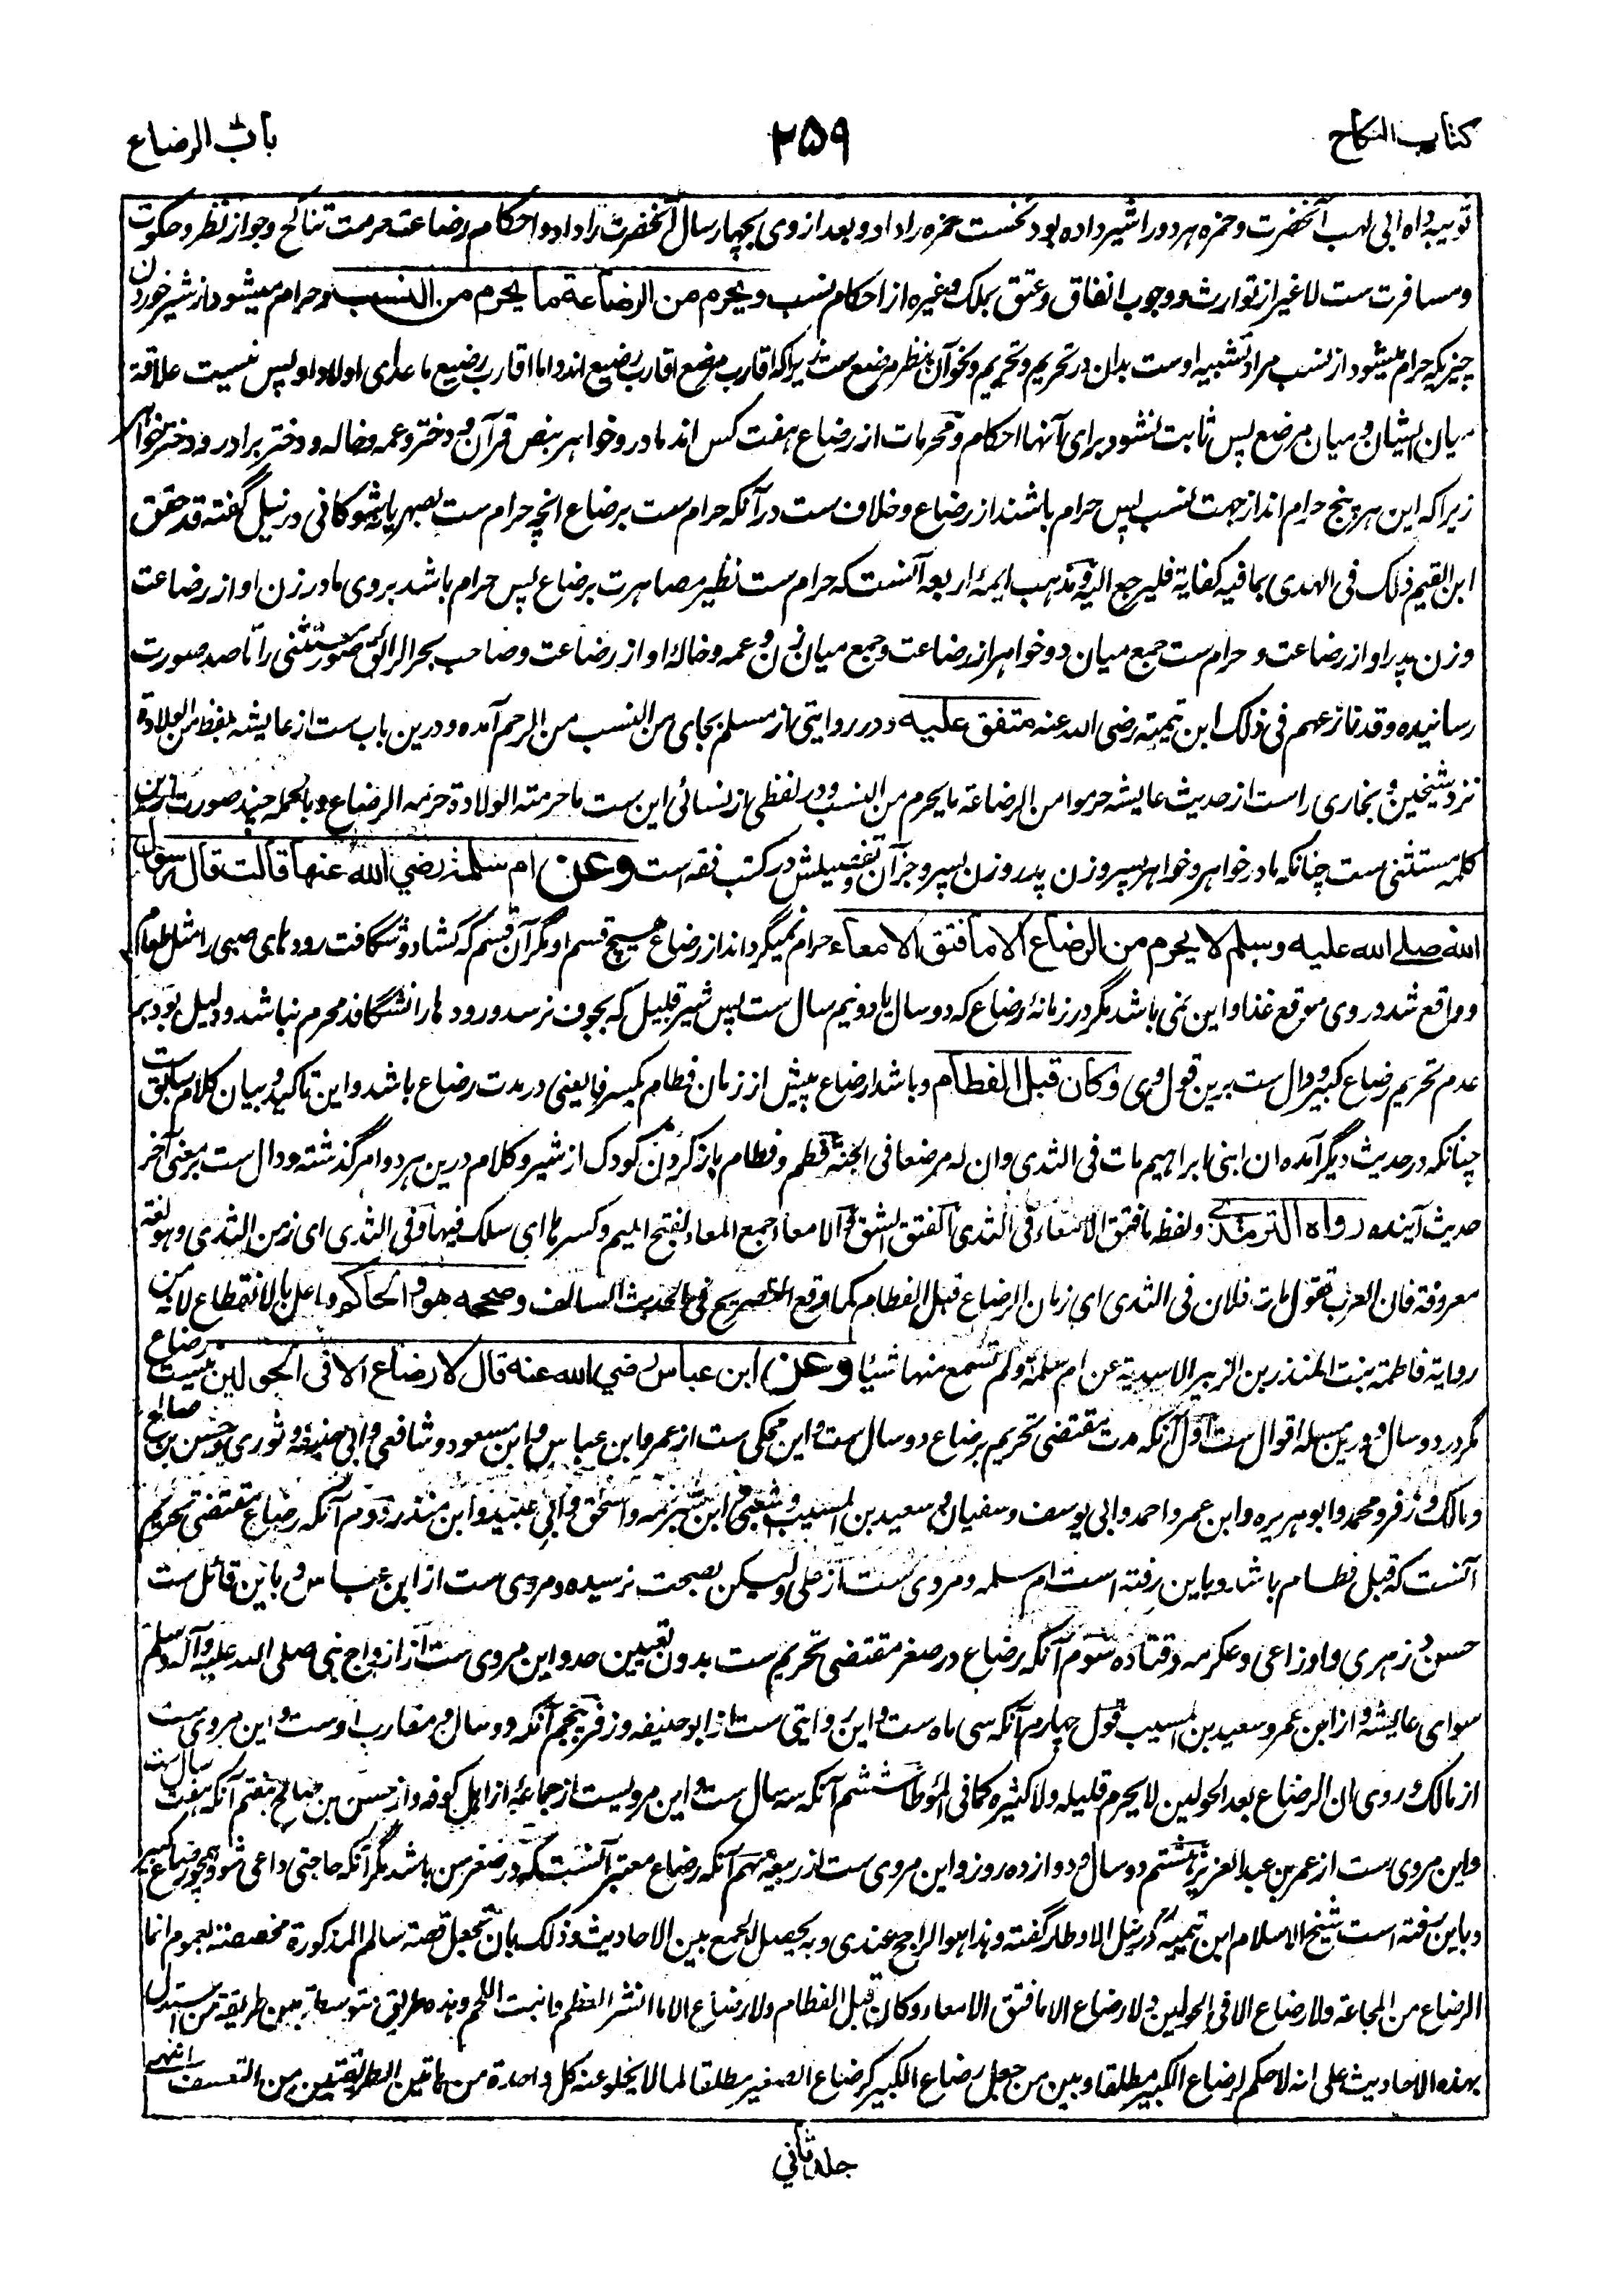 کتاب النکاح
۲۵۹
باب الرضاع
ثویبه داه ابی لهب آنحضرت و حمزه هر دو را شیر داده بود نخست حمزه را داد و بعد از وی بچهار سال آنحضرت را داد و احکام رضاعت حرمت تناکح و جواز نظر و خلوت
و مسافرت ست لا غیر از توارث و وجوب انفاق و عتق بملک و غیره از احکام نسب ویحرم من الرضاعة ما یحرم من النسب و حرام میشود از شیر خوردن
چیزیکه حرام میشود از نسب مراد تشبیه اوست بدان در تحریم و تحریم و نحو آن بنظر مرضع ست زیراکه اقارب مرضع اقارب رضیع اند و اما اقارب رضیع ما عدای اولاد او پس نیست علاقة
میان ایشان و میان مرضع پس ثابت نشود برای آنها احکام و محرمات از رضاع هفت کس اند مادر و خواهر بنص قرآن و دختر و عمه و خاله و دختر برادر و دختر خواهر
زیراکه این هر پنج حرام اند از جهت نسب پس حرام باشند از رضاع و خلاف ست در آنکه حرام ست برضاع انچه حرام ست بصهر یا نه شوکانی در نیل گفته قد حقق
ابن القیم ذلک فی الهدی بما فیه کفایة فلیرجع الیه و مذهب ایمهٔ اربعه آنست که حرام ست نظیر مصاهرت برضاع پس حرام باشد بر وی مادر زن او از رضاعت
و زن پدر او از رضاعت و حرام ست جمع میان دو خواهر از رضاعت و جمع میان زن و عمه و خالهٔ او از رضاعت و صاحب بحر الرائق صور مستثنی را تا صد صورت
رسانیده و قد نازعهم فی ذلک ابن تیمیة رضی الله عنه متفق علیه و در روایتی از مسلم بجای من النسب من الرحم آمده و درین باب ست از عایشه بلفظ من الولادة
نزد شیخین و بخاری راست از حدیث عایشه حرموا من الرضاعة ما یحرم من النسب و در لفظی از نسائی این ست ما حرمته الولادة حرمه الرضاع و بالجمله چند صورت ازین
کلمه مستثنی ست چنانکه مادر خواهر و خواهر پسر و زن پدر و زن پسر و جز آن و تفصیلش در کتب فقه است وعن ام سلمة رضي الله عنها قالت قال رسول
الله صلے الله علیه وسلم لا یحرم من الرضاع الا ما فتق الامعاء حرام نمیگرداند از رضاع هیچ قسم او مگر آن قسم که کشاد و شگافت رودهای صبی را مثل طعام
و واقع شد در وی موقع غذا و این نمی باشد مگر در زمانهٔ رضاع که دو سال یا دو نیم سال ست پس شیر قلیل که بجوف نرسد و رودها را نشگافد محرم نباشد و دلیل بود بر
عدم تحریم رضاع کبیر و دال ست برین قول وی وکان قبل الفطام و باشد ارضاع پیش از زمان فطام بکسر فا یعنی در مدت رضاع باشد و این تاکید و بیان کلام سابق ست
چنانکه در حدیث دیگر آمده ان ابنی ابراهیم مات فی الثدی وان له مرضعا فی الجنة فطم و فطام باز کردن کودک از شیر و کلام درین هر دو امر گذشته و دال ست بر معنی آخر
حدیث آینده رواه الترمذی و لفظه ما فتق الامعاء فی الثدی الفتق الشق والامعاء جمع المعاء بفتح المیم و کسرها ای سلک فیها و فی الثدی ای زمن الثدی و هو لغة
معروفة فان العرب تقول مات فلان فی الثدی ای زمان الرضاع قبل الفطام کما وقع التصریح فی الحدیث السالف وصححه هو والحاکم و اعل بالانقطاع لانه من
روایة فاطمة بنت المنذر بن الزبیر الاسدیة عن ام سلمة ولم تسمع منها شیئا وعن ابن عباس رضي الله عنه قال لا رضاع الا فی الحولین نیست رضاع
مگر در دو سال و درین مسئله اقوال ست اول آنکه مدت مقتضی تحریم برضاع دو سال ست و این محکی ست از عمر و ابن عباس و ابن مسعود و شافعی و ابی حنیفه و ثوری و حسن بن صالح
و مالک و زفر و محمد و ابو هریره و ابن عمر و احمد و ابی یوسف و سفیان و سعید بن المسیب و شعبی و ابن شبرمه و اسحق و ابی عبید و ابن منذر دوم آنکه رضاع مقتضی تحریم
آنست که قبل فطام باشد و باین رفته است ام سلمه و مروی ست از علی ولیکن بصحت نرسیده و مروی ست از ابن عباس و باین قائل ست
حسن و زهری و اوزاعی و عکرمه و قتاده سوم آنکه رضاع در صغر مقتضی تحریم ست بدون تعیین حد و این مروی ست از ازواج نبی صلی الله علیه وآله وسلم
سوای عایشه و از ابن عمر و سعید بن المسیب قول چهارم آنکه سی ماه ست و این روایتی ست از ابو حنیفه و زفر پنجم آنکه دو سال و مقارب اوست و این مروی ست
از مالک و روی ان الرضاع بعد الحولین لا یحرم قلیله ولا کثیره کما فی المؤطا ششم آنکه سه سال ست و این مرویست از جماعهٔ از اهل کوفه و از حسن بن صالح هفتم آنکه هفت سال ست
و این مروی ست از عمر بن عبد العزیز هشتم دو سال و دوازده روز و این مروی ست از ربیعه نهم آنکه رضاع معتبر آنست که در صغر سن باشد مگر آنکه حاجتی داعی شود همچو رضاع کبیر
و باین رفته است شیخ الاسلام ابن تیمیه در نیل الاوطار گفته و هذا هو الراجح عندی و به یحصل الجمع بین الاحادیث و ذلک بان تجعل قصة سالم المذکورة مخصصة لعموم انما
الرضاع من المجاعة ولا رضاع الا فی الحولین ولا رضاع الا ما فتق الامعاء وکان قبل الفطام ولا رضاع الا ما انشز العظم وانبت اللحم وهذه طریق متوسطة بین طریقة من استدل
بهذه الاحادیث علی انه لا حکم لرضاع الکبیر مطلقا و بین من جعل رضاع الکبیر کرضاع الصغیر مطلقا لما لا یخلو عنه کل واحدة من هاتین الطریقتین من التعسف انتهی
جلد ثانی